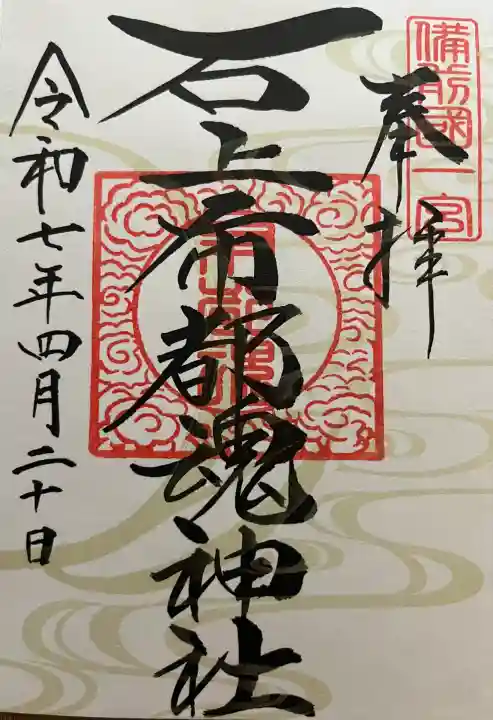 備前國一宮
奉拝
石上布都魂神社
令和七年四月二十日